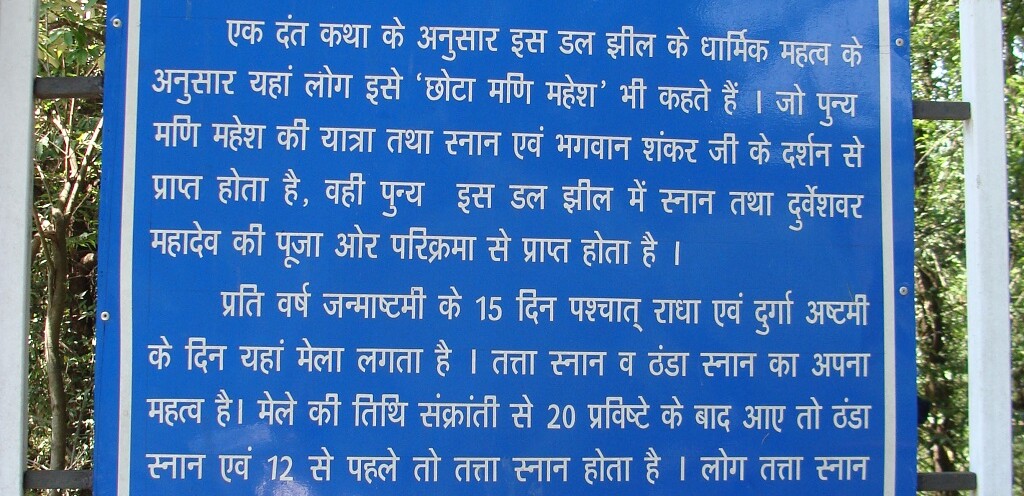 एक दंत कथा के अनुसार इस डल झील के धार्मिक महत्व के
अनुसार यहां लोग इसे ‘छोटा मणि महेश’ भी कहते हैं । जो पुन्य
मणि महेश की यात्रा तथा स्नान एवं भगवान शंकर जी के दर्शन से
प्राप्त होता है, वही पुन्य इस डल झील में स्नान तथा दुर्वेशवर
महादेव की पूजा ओर परिक्रमा से प्राप्त होता है ।
प्रति वर्ष जन्माष्टमी के 15 दिन पश्चात् राधा एवं दुर्गा अष्टमी
के दिन यहां मेला लगता है । तत्ता स्नान व ठंडा स्नान का अपना
महत्व है। मेले की तिथि संक्रांती से 20 प्रविष्टे के बाद आए तो ठंडा
स्नान एवं 12 से पहले तो तत्ता स्नान होता है । लोग तत्ता स्नान